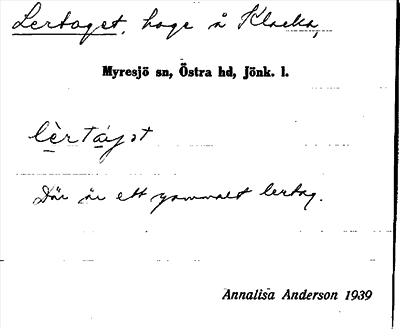 Lertaget, hage å Klacka,
Myresjö sn, Östra hd, Jönk. l.
lèrtáɡət
Där är ett gammalt lertag.
Annalisa Anderson 1939